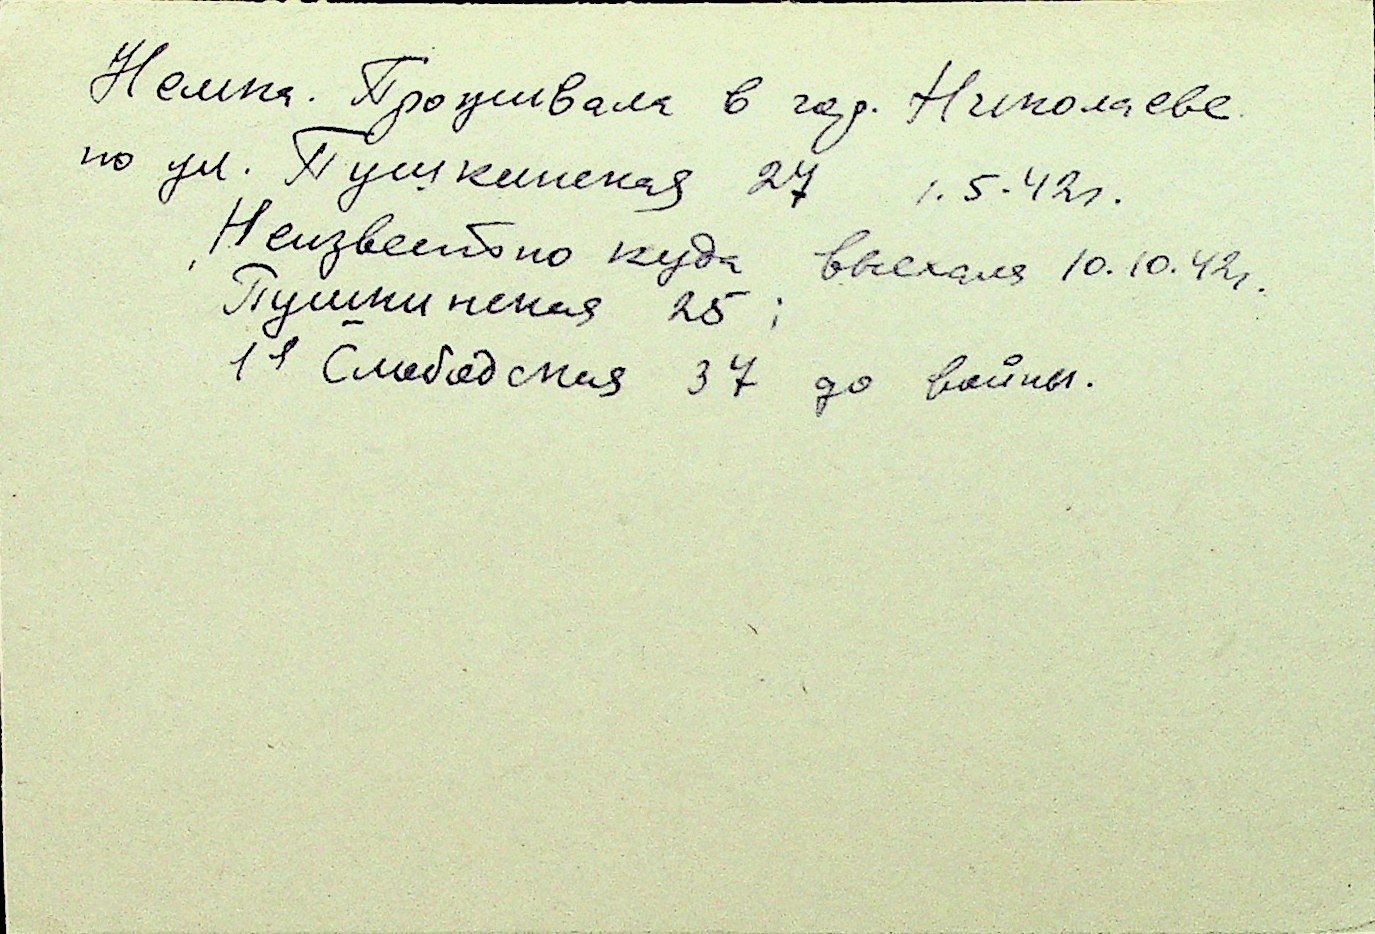 Немка. Проживала в гор. Николаеве
по ул. Пушкинская 27 1.5.42г.
Неизвестно куда выехала 10.10.42г.
Пушкинская 25;
1я Слободская 37 до войны.